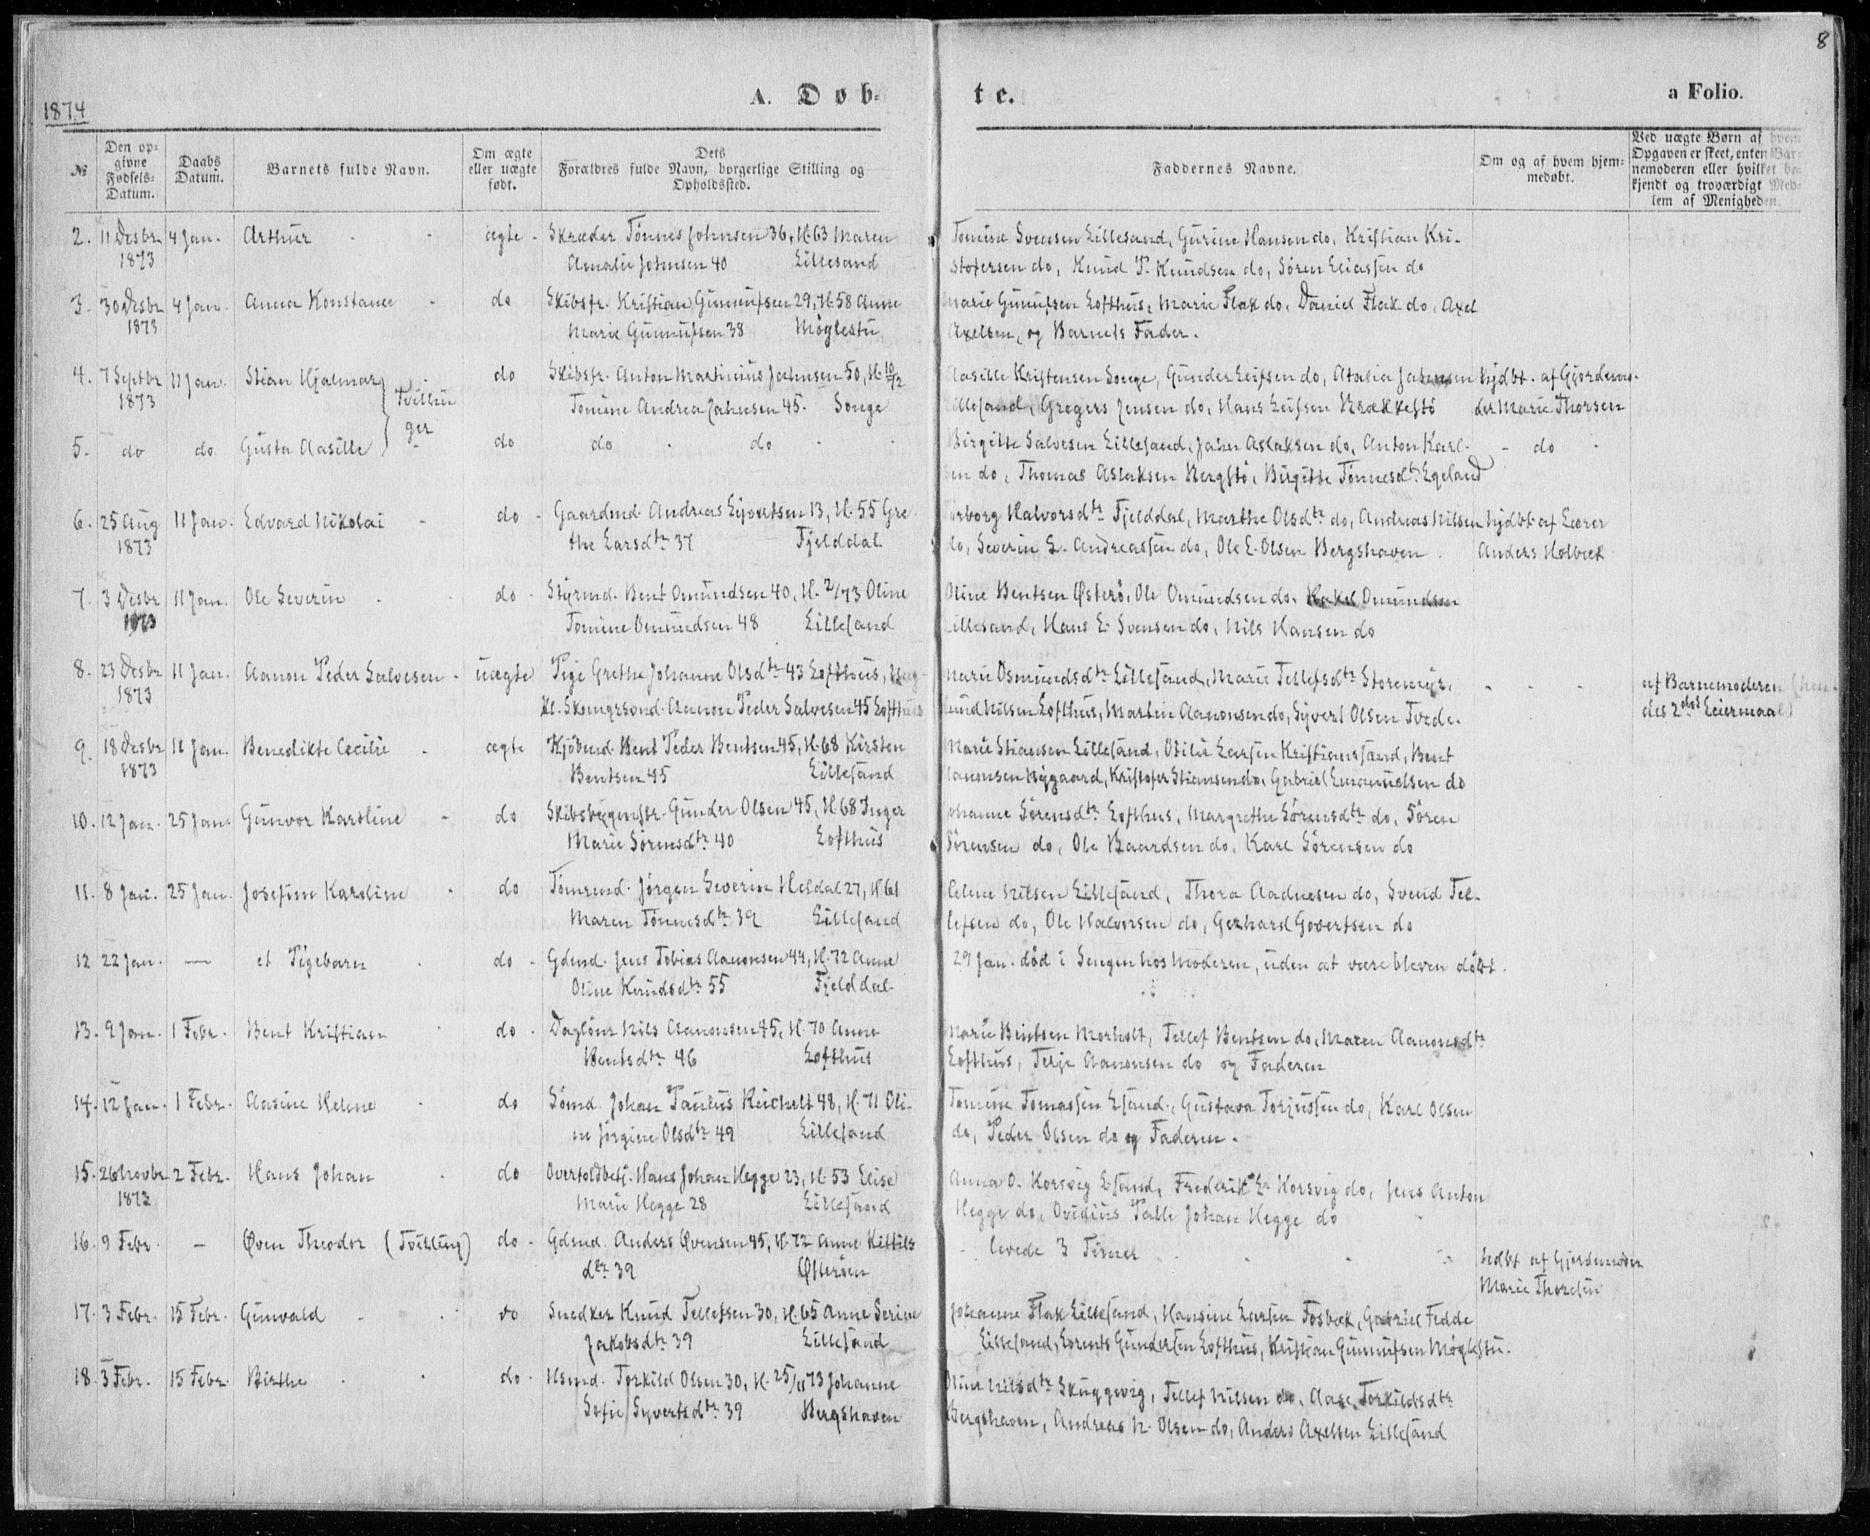 8
1874
A. Døb-
te.
a Folio.
№
Den op-
givne
Fødsels-
Datum.
Daabs
Datum.
Barnets fulde Navn.
Om ægte
eller uægte
født.
Dets
Forældres fulde Navn, borgerlige Stilling og
Opholdssted.
Faddernes Navne.
Om og af hvem hjem-
medøbt.
Ved uægte Børn af hvem
Opgaven er skeet, enten Bar-
nemoderen eller hvilket be-
kjendt og troværdigt Med-
lem af Menigheden.
2. 11 Desbr 4 Jan. Arthur ægte Skræder Tønnes Johnsen 36, H. 63 Maren Tomine Svensen Lillesand, Gurine Hansen do, Kristian Kri-
1873 Amalie Johnsen 40 Lillesand stofersen do, Knud P. Knudsen do, Søren Eliassen do
3. 30 Desbr 4 Jan. Anna Konstance do Skibsfr. Kristian Gunnufsen 29, H. 58 Anne Marie Gunufsen Lofthus, Marie Flak do, Daniel Flak do, Axel
1873 Marie Gunnufsen 38 Møglestu Axelsen, og Barnets Fader.
4. 7 Septbr 11 Jan. Stian Hjalmar do Skibsfr. Anton Martinius Jahnsen 50, H. 10/2 Aasille Kristensen Songe, Gunder Leifsen do, Atalia Jahnsen hjdbt. af Gjordemo-
1873 Tvillin Tomine Andrea Jahnsen 45. Songe Lillesand, Gregers Jensen do, Hans Leifsen Krækkestø der Marie Thorsen
ger
5. do do Gusta Aasille do do do Birgitte Salvesen Lillesand, Jahn Aslaksen do, Anton Karl- do
sen do, Thomas Aslaksen Bergstø, Birgitte Tønnesdtr Egeland
6. 25 Aug 11 Jan. Edvard Nikolai do Gaardmd. Andreas Syvertsen 13, H. 55 Gre- Torborg Halvorsdtr Fjelddal, Marthe Olsdtr do, Andreas Nilsen hjdbt. af Lærer
1873 the Larsdtr 37 Fjelddal do, Severin L. Andreassen do, Ole E. Olsen Bergshaven. Anders Holbæk
7. 3 Desbr 11 Jan. Ole Severin do Styrmd. Bent Omundsen 40, H. 2/73 Oline Oline Bentsen Østerø, Ole Omundsen do, Rakel Omundsen
1873 Tomine Omundsen 48 Lillesand Lillesand, Hans E. Svensen do, Nils Hansen do
8. 23 Desbr 11 Jan. Aanon Peder Salvesen uægte Pige Grethe Johanne Olsdtr 43 Lofthus, Ung- Marie Osmundsdtr Lillesand, Marie Tellefsdtr Storemyr, af Barnemoderen (hen-
1873 kl. Skomgrsvnd. Aanon Peder Salvesen 45 Lofthus Knud Nilsen Lofthus, Martin Aanonsen do, Syvert Olsen Tvede. des 2det Leiermaal)
9. 18 Desbr 11 Jan. Benedikte Cecilie ægte Kjøbmd. Bent Peder Bentsen 45, H. 68 Kirsten Marie Stiansen Lillesand, Otilie Larsen Kristianssand, Bent
1873 Bentsen 45 Lillesand Aanonsen Nygaard, Kristofer Stiansen do, Gabriel Emanuelsen do
10. 12 Jan. 25 Jan. Gunvor Karoline do Skibsbygmstr. Gunder Olsen 45, H. 68 Inger Johanne Sørensdtr Lofthus, Margrethe Sørensdtr do, Søren
Marie Sørensdtr 40 Lofthus Sørensen do, Ole Baardsen do, Karl Sørensen do
11. 8 Jan. 25 Jan. Josefine Karoline do Tømrmd. Jørgen Severin Heldal 27, H. 61 Helene Nilsen Lillesand, Thora Aadnesen do, Svend Tel-
Maren Tønnesdtr 39 Lillesand lefsen do, Ole Halvorsen do, Gerhard Govertsen do
12 22 Jan. — et Pigebarn do Gdmd. Jens Tobias Aanonsen 44, H. 72 Anne 29 Jan. død i Sengen hos Moderen, uden at være bleven døbt.
Oline Knudsdtr 55 Fjelddal
13. 9 Jan. 1 Febr. Bent Kristian do Daglønr Nils Aanonsen 45, H. 70 Anne Marie Bentsen Morholt, Tellef Bentsen do, Maren Aanonsdtr
Bentsdtr 46 Lofthus Lofthus, Telje Aanonsen do og Faderen
14. 12 Jan. 1 Febr. Aasine Helene do Sømd. Johan Paulus Reichelt 48, H. 71 Oli- Tomine Tomassen Lsand., Gustava Torjussen do, Karl Olsen
ne Jørgine Olsdtr 49 Lillesand do, Peder Olsen do og Faderen.
15. 26 Novbr 2 Febr. Hans Johan do Overtoldbetj. Hans Johan Hegge 23, H. 53 Elise Anna O. Korsvig Lsand, Frederik L. Korsvig do, Jens Anton
1873 Marie Hegge 28 Lillesand Hegge do, Ovidius Palle Johan Hegge do
16. 9 Febr. — Øven Theodor (Tvilling) do Gdmd. Anders Øvensen 45, H. 72 Anne Kittils- levede 3 Timer hdbt af Gjordemoder
dtr 39 Østerøen Marie Thorsen
17. 3 Febr. 15 Febr. Gunvald do Snedker Knud Tellefsen 30, H. 65 Anne Serine Johanne Flak Lillesand, Hansine Larsen Fosbæk, Gabriel Fedde
Jakobsdtr 39 Lillesand Lillesand, Lorents Gundersen Lofthus, Kristian Gunnufsen Møglestu.
18. 3 Febr. 15 Febr. Birthe do Torkild Olsen 30, H. 25/11 73 Johanne Oline Nilsdtr Skuggevig, Tellef Nilsen do, Aase Torkildsdtr
Sofie Syvertsdtr 39 Bergshaven Bergshaven, Andreas N. Olsen do, Anders Axelsen Lillesand